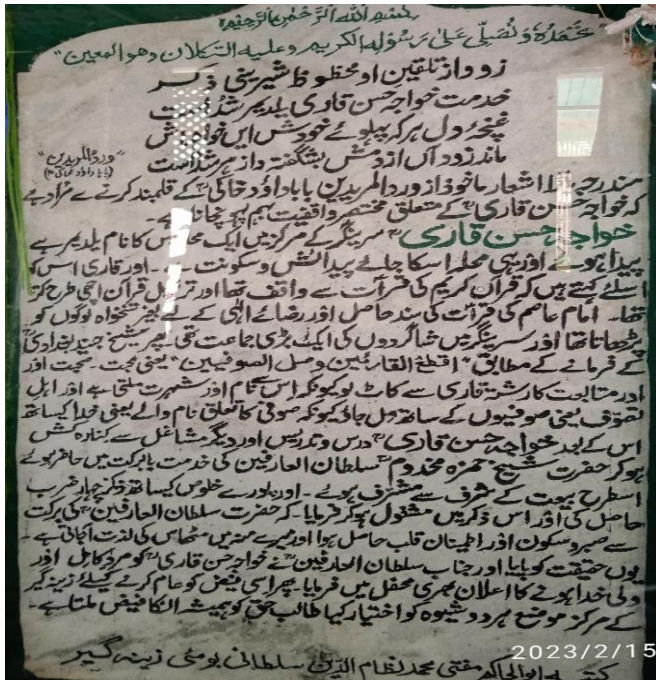 بِسْمِ اللهِ الرَّحْمٰنِ الرَّحِيْمِ
نَحْمَدُهٗ وَنُصَلِّی عَلٰی رَسُوْلِهِ الْكَرِيْمِ وعليه التكلان وهو المعين"
زو و از تلقینِ او محظوظ شیرینی ذکر
خدمت خواجہ حسن قاری یلدیمر شُدست
غنچۂ دل ہر کہ پہلوئے خودش ایں خواجہ خوش
ماند زود آں از دمش بشگفت و از ہر شد است
"ورد المریدین"
(بابا داؤد خاکیؒ)
مندرجہ بالا اشعار ماخوذ از ورد المریدین بابا داؤد خاکیؒ کے قلمبند کرنے سے مُراد ہے
کہ خواجہ حسن قاریؒ کے متعلق مختصر واقفیت بہم پہونچانا ہے۔
خواجہ حسن قاریؒ سرینگر کے مرکز میں ایک محلہ جس کا نام یلدیمر ہے
پیدا ہوئے اور یہی محلہ اسکا جائے پیدائش و سکونت ہے۔ اور قاری اس کو
اسلئے کہتے ہیں کہ قرآن کریم کی قرأت سے واقف تھا اور ترتیل قرآن اچھی طرح کرتا
تھا۔ امام عاصم کی قرأت کی سند حاصل اور رضائے الٰہی کے لئے بغیر تنخواہ لوگوں کو
پڑھاتا تھا اور سرینگر میں شاگردوں کی ایک بڑی جماعت تھی۔ پھر شیخ جنید بغدادیؒ
کے فرمانے کے مطابق "اقطع القارئین وصل الصوفیین" یعنی محبت۔ صحبت اور
اور متابعت کا رشتہ قاری سے کاٹ لو کیونکہ اس سے نام اور شہرت ملتی ہے اور اہل
تصوف یعنی صوفیوں کے ساتھ مل جاؤ کیونکہ صوفی کا تعلق نام والے یعنی خدا کیساتھ
اس کے بعد خواجہ حسن قاریؒ درس و تدریس اور دیگر مشاغل سے کنارہ کش
ہو کر حضرت شیخ حمزہ مخدومؒ سلطان العارفین کی خدمت بابرکت میں حاضر ہوئے
اسطرح بیعت کے شرف سے مشرف ہوئے۔ اور پورے خلوص کیساتھ ذکر چہار ضرب
حاصل کی اور اس ذکر میں مشغول ہو کر فرمایا۔ کہ حضرت سلطان العارفینؒ کی برکت
سے صبر و سکون اور اطمینان قلب حاصل ہوا اور میرے منہ میں مٹھاس کی لذت آجاتی ہے۔
یوں حقیقت کو پایا اور جناب سلطان العارفینؒ نے خواجہ حسن قاریؒ کو مردِ کامل اور
ولی خدا ہونے کا اعلان بھری محفل میں فرمایا۔ پھر اسی فیض کو عام کرنے کیلئے زینہ گیر
کے مرکز موضع ہردوشیوہ کو اختیار کیا طالب حق کو ہمیشہ انکا فیض ملتا ہے۔
2023/2/15
کتبہ ابو الحاکم مفتی محمد نظام الدین سلطانی بومئی زینہ گیر